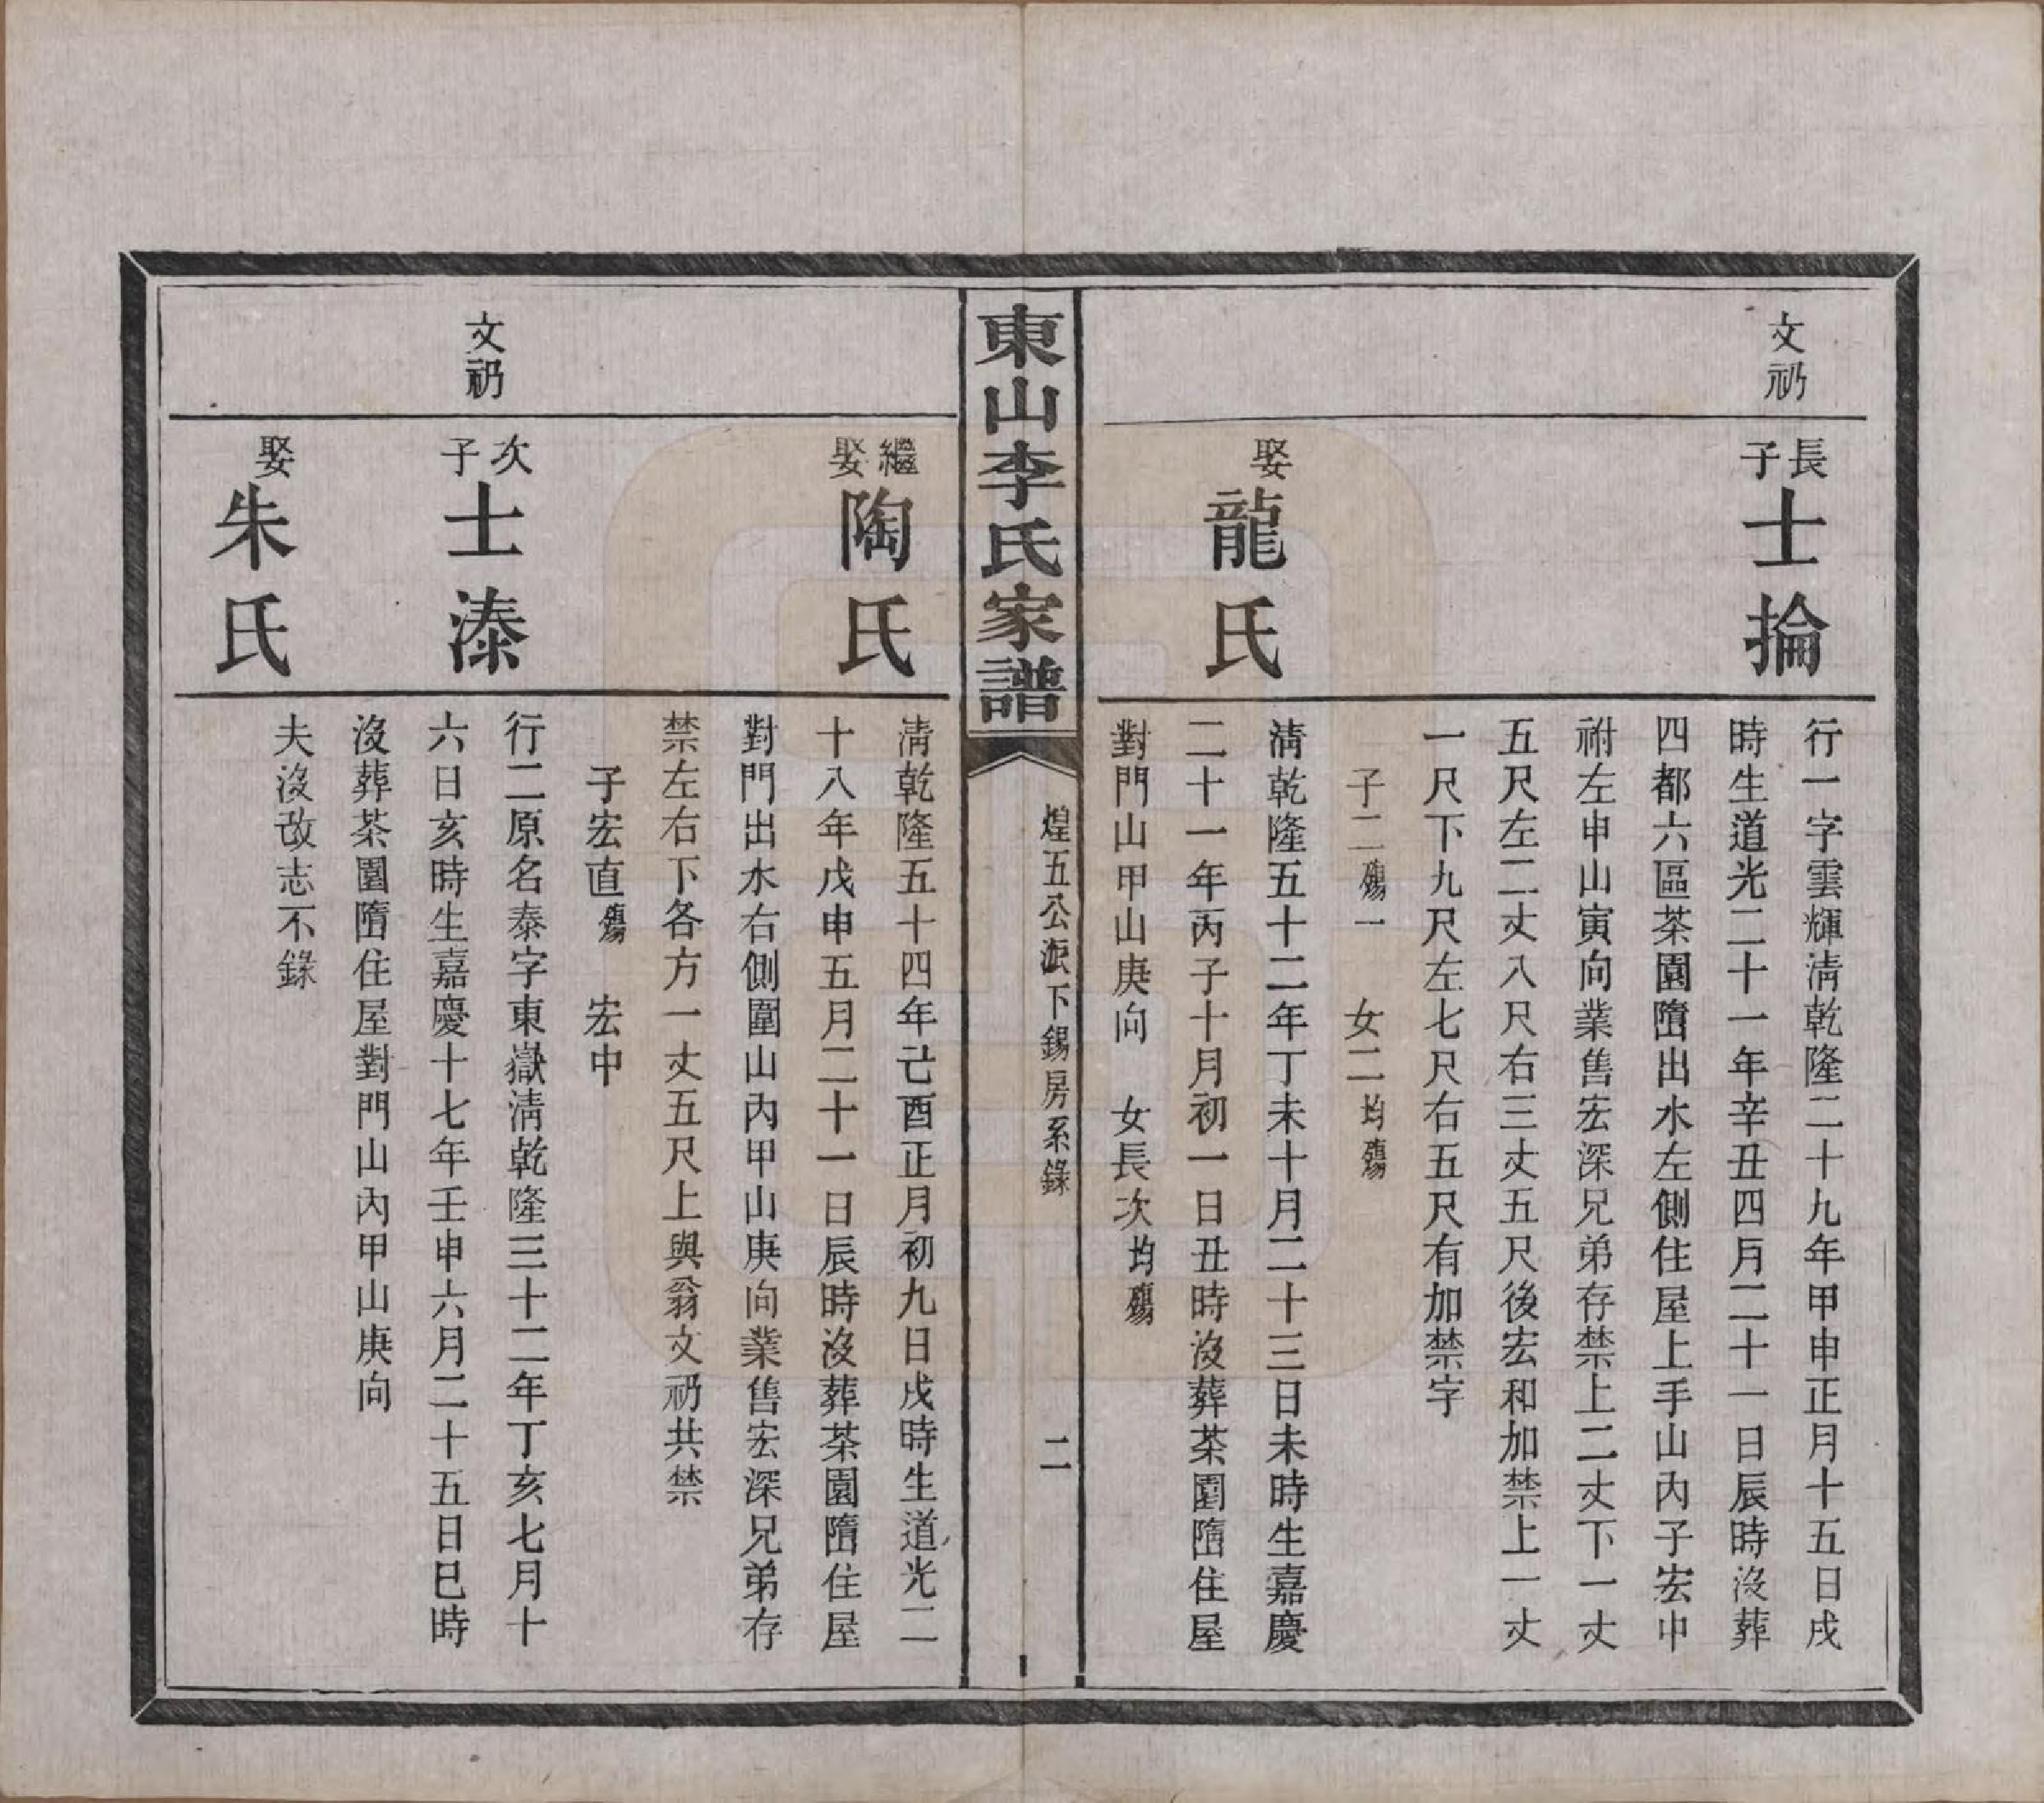 文礽
長子
士掄
行一字雲輝淸乾隆二十九年甲申正月十五日戌
時生道光二十一年辛丑四月二十一日辰時沒葬
四都六區茶園墮出水左側住屋上手山內子宏中
祔左申山寅向業售宏深兄弟存禁上二丈下一丈
五尺左二丈八尺右三丈五尺後宏和加禁上一丈
一尺下九尺左七尺右五尺有加禁字
子二殤一　女二均殤
娶
龍氏
淸乾隆五十二年丁未十月二十三日未時生嘉慶
二十一年丙子十月初一日丑時沒葬茶園墮住屋
對門山甲山庚向　女長次均殤
東山李氏家譜
煌五公派下錫房系錄
二
繼娶
陶氏
淸乾隆五十四年己酉正月初九日戌時生道光二
十八年戊申五月二十一日辰時沒葬茶園墮住屋
對門出水右側圍山內甲山庚向業售宏深兄弟存
禁左右下各方一丈五尺上與翁文礽共禁
子宏直殤　宏中
文礽
次子
士溙
行二原名泰字東嶽淸乾隆三十二年丁亥七月十
六日亥時生嘉慶十七年壬申六月二十五日巳時
沒葬茶園墮住屋對門山內甲山庚向
娶
朱氏
夫沒改志不錄